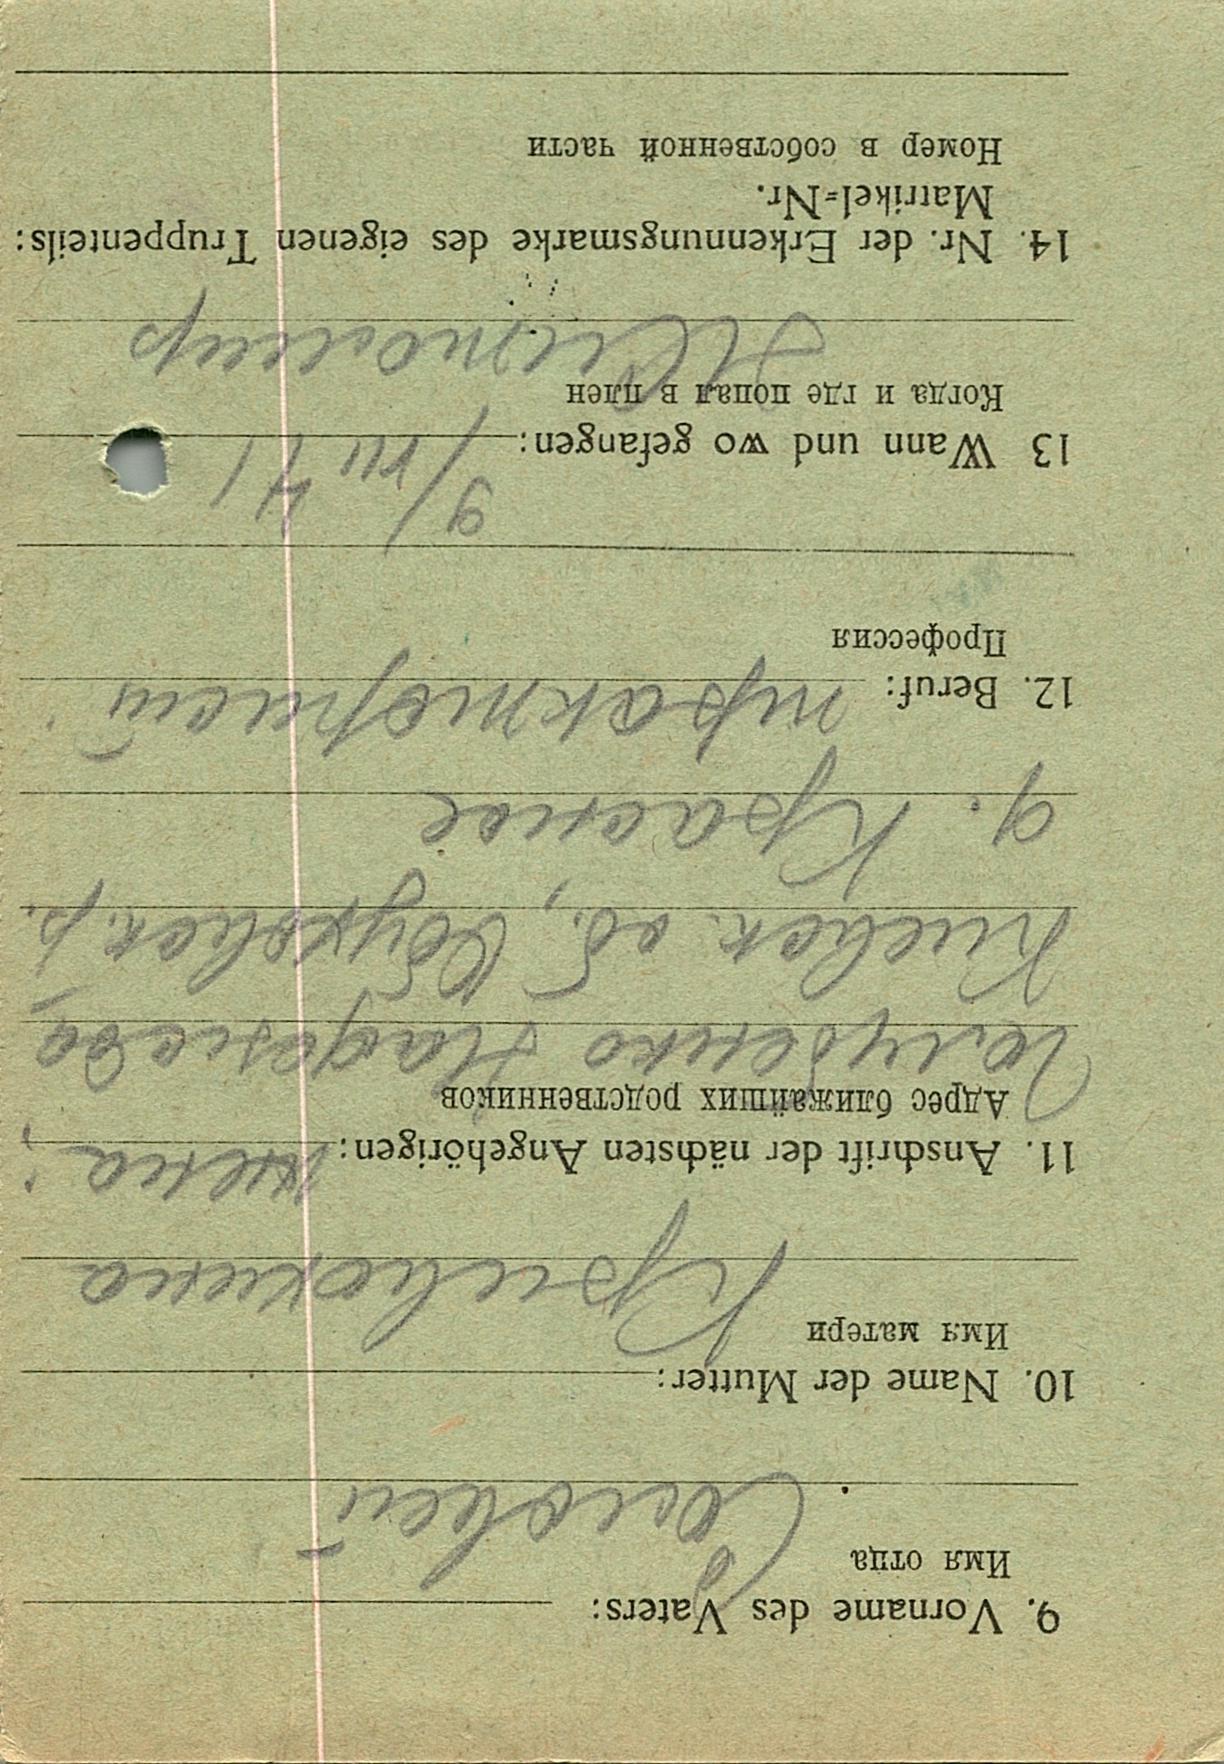 9. Vorname des Vaters:
Имя отца
Соловей
10. Name der Mutter:
Имя матери
Кривокина
11. Anschrift der nächsten Angehörigen: жена;
Адрес ближайших родственников
Надежда
Киевск. об., Обуховск. р.
д. Красное
12. Beruf: тракторист
Профессия
13 Wann und wo gefangen: 9/VII 41
Когда и где попал в плен
Житомир
14. Nr. der Erkennungsmarke des eigenen Truppenteils:
Matrikel=Nr.
Номер в собственной части